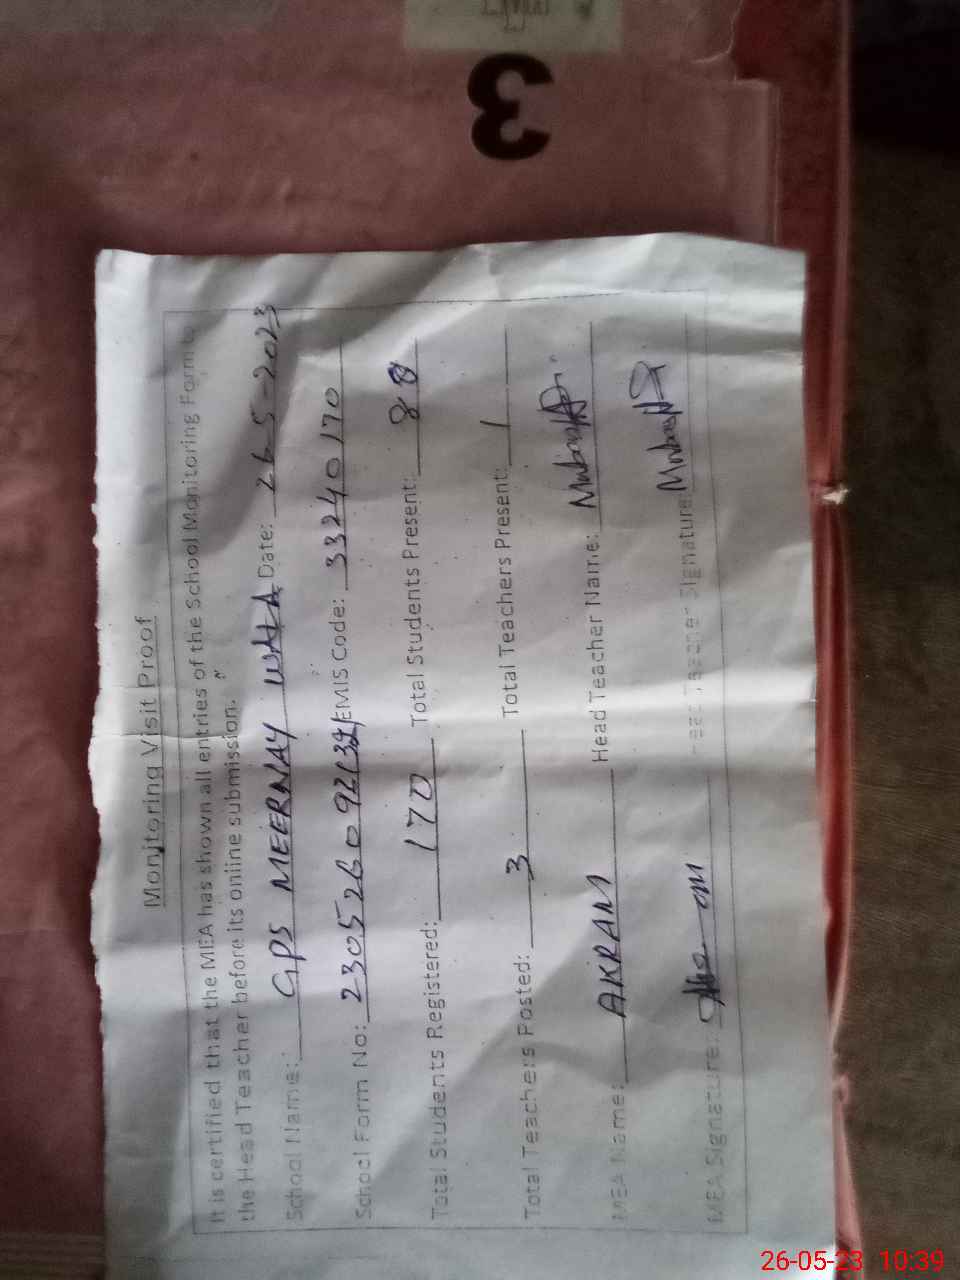 3
Monitoring Visit Proof
It is certified that the MEA has shown all entries of the School Monitoring Form to
the Head Teacher before its online submission.
School Name: GPS MEERWAY WALA Date: 26-5-2023
School Form No: EMIS Code: 33240170
Total Students Registered: 170 Total Students Present: 88
Total Teachers Posted: 3 Total Teachers Present: 1
MEA Name: AKRAM Head Teacher Name:
MEA Signature: Head Teacher Signature:
26-05-23 10:39